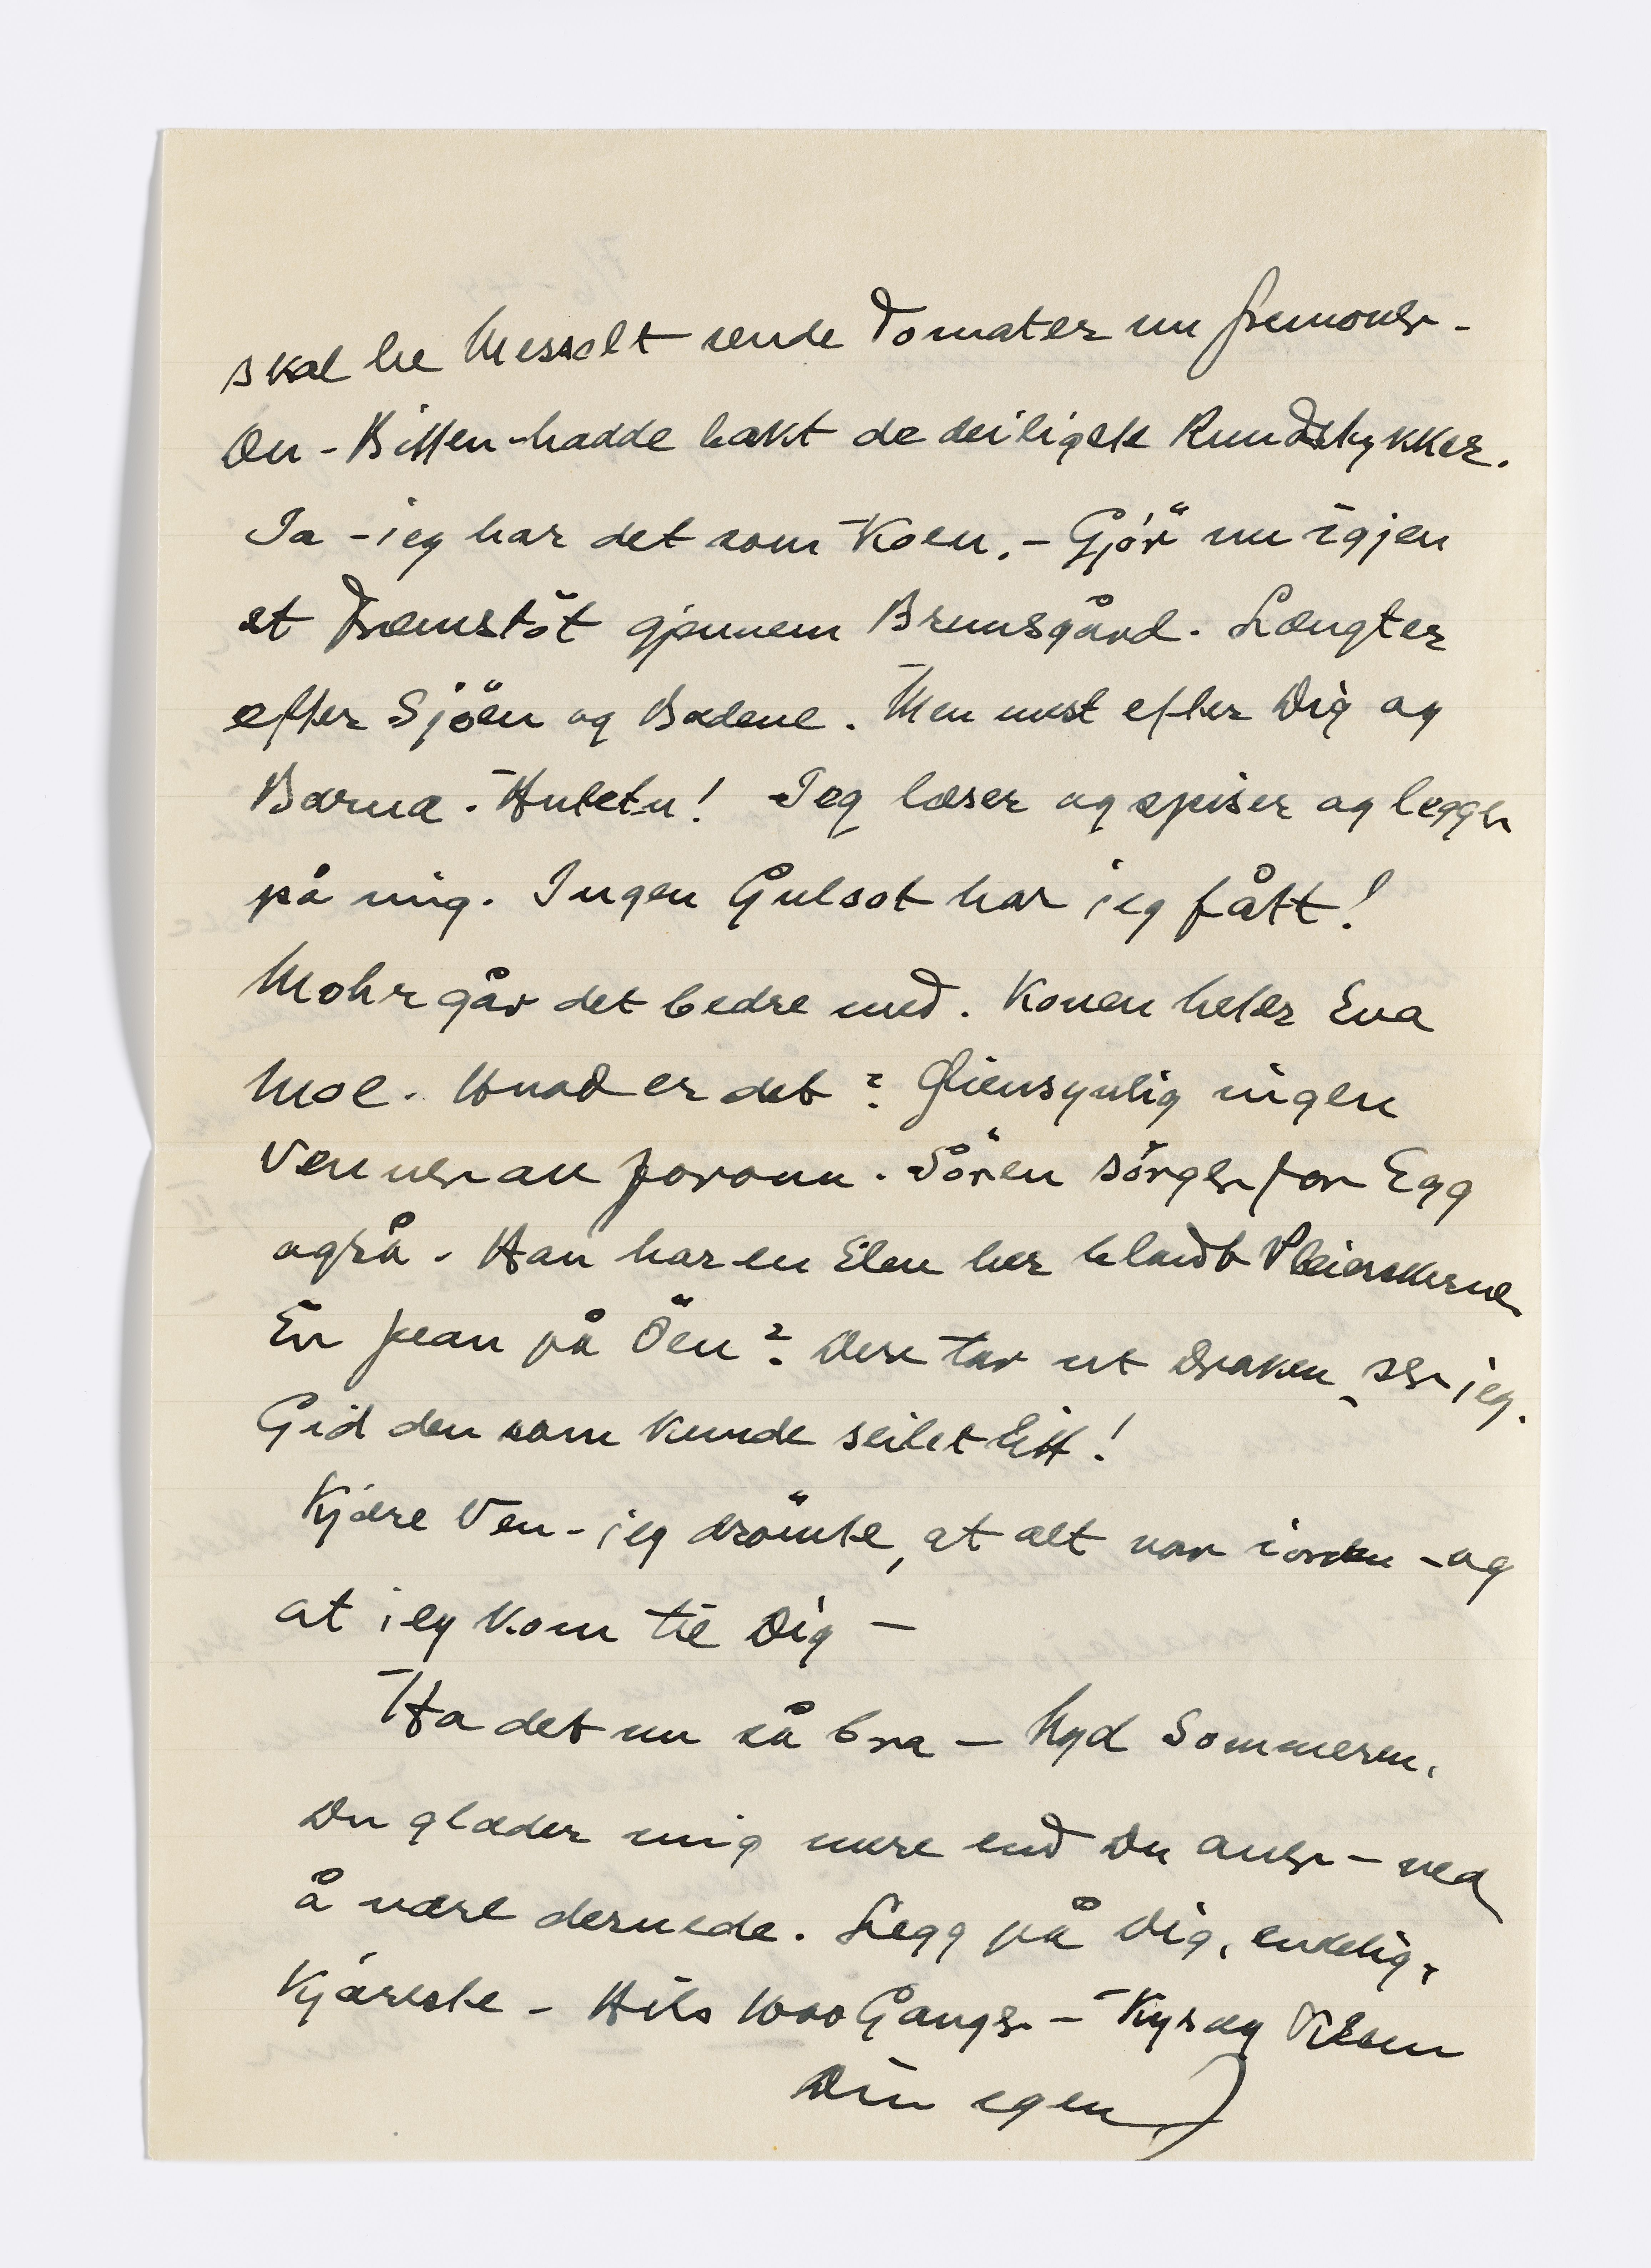 skal be Messelt sende Tomater nu fremover -
Du - Bitten - hadde bakt de deiligste Rundstykker.
Ja - jeg har det som Koen. - Gjör nu igjen
et Fremstöt gjennem Bruusgård. Længter
efter Sjöen og Badene. Men mest efter Dig og
Barna. Huletu! Jeg læser og spiser og legger
på mig. Ingen Gulsot har jeg fått!
Mohr går det bedre med. Konen heter Eva
Moe. Hvad er det? Öiensynlig ingen
Venner an foroven. Sören sörger for Egg
også. Han har en Elev her blandt Pleierskerne
En fean på Öen? Dere tar ut Draken, ser jeg.
Gid den som kunde seilet litt!
Kjære Ven - jeg drömte, at alt var iorden - og
at jeg kom til Dig -
Ha det nu så bra - Nyd Sommeren.
Du glæder mig mere end Du aner - ved
å være dernede. Legg på Dig, endelig,
Kjæreste - Hils 1000 Ganger - Kys og Klem
Din egen